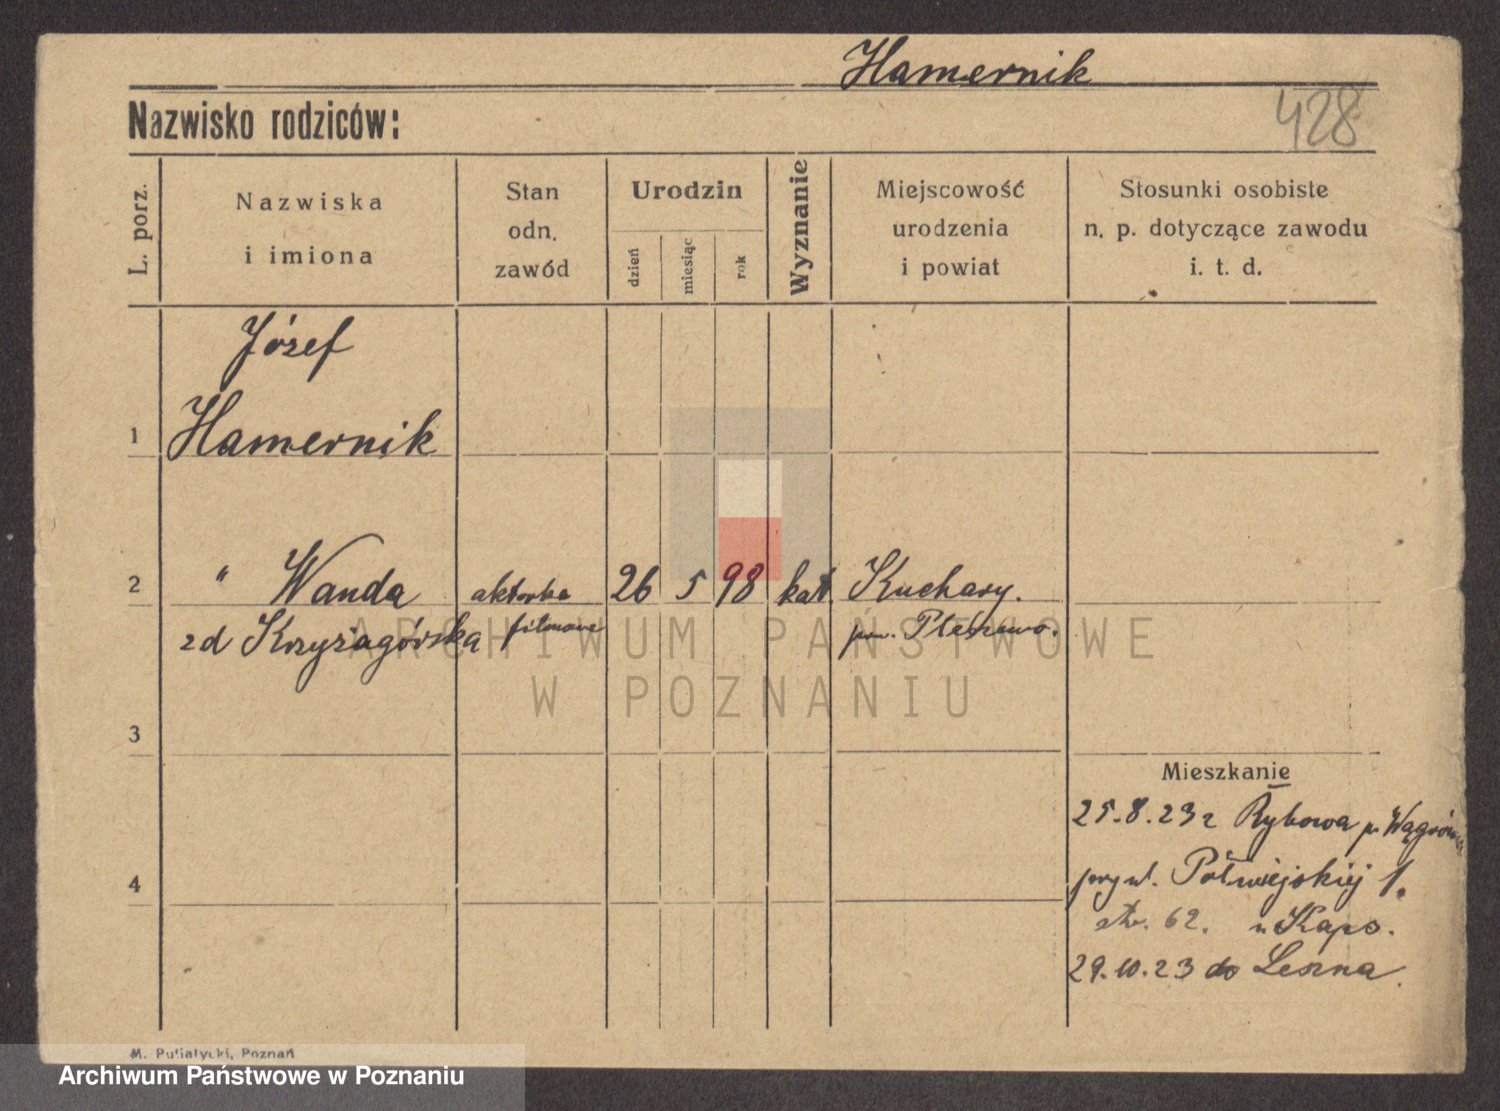 Hamernik
428
Nazwisko rodziców:
L. porz.
Nazwiska
i imiona
Stan
odn.
zawód
Urodzin
dzień
miesiąc
rok
Wyznanie
Miejscowość
urodzenia
i powiat
Stosunki osobiste
n. p. dotyczące zawodu
i. t. d.
Józef
1 Hamernik
2 " Wanda aktorka 26 5 98 kat. Kuchary.
zd Krzyżagórska filmowa pow. Pleszewo.
ARCHIWUM PAŃSTWOWE
W POZNANIU
3
Mieszkanie
25.8.23 z Rybowa p.
4
przy ul. Półwiejskiej 1.
str. 62. u Kaps.
29.10.23 do Leszna.
M. Putiatycki, Poznań
Archiwum Państwowe w Poznaniu